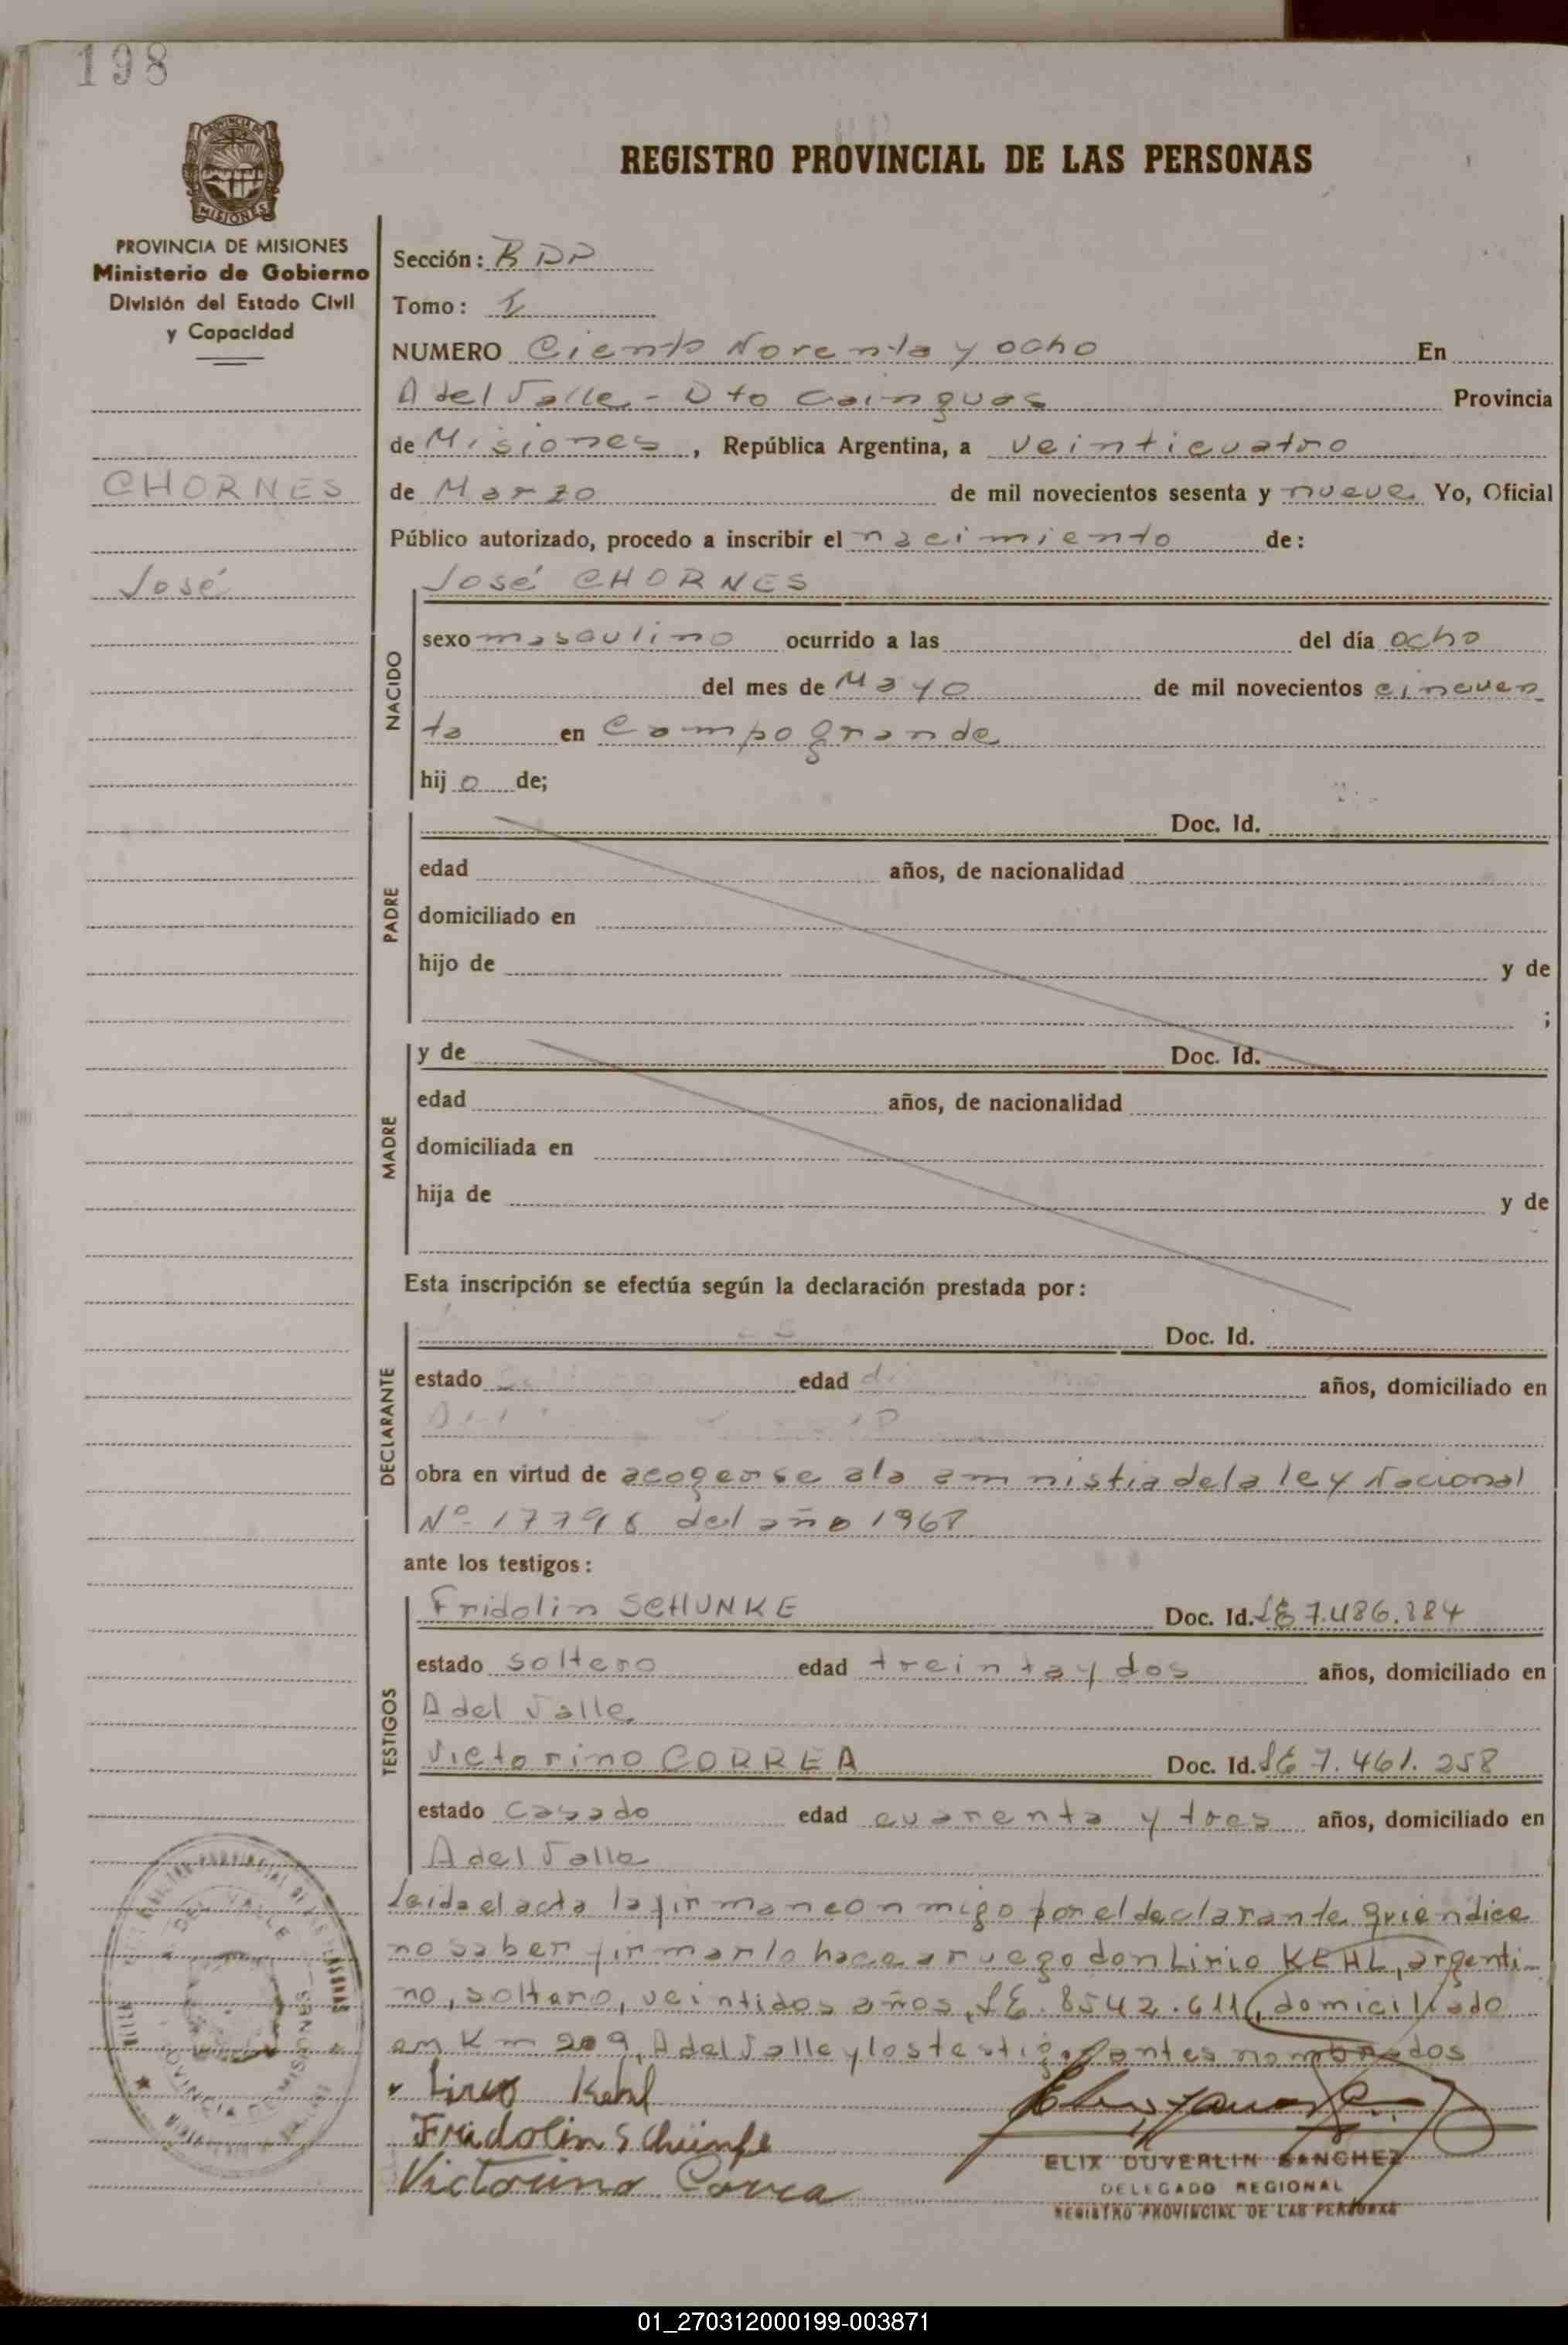 198
PROVINCIA DE
MISIONES
REGISTRO PROVINCIAL DE LAS PERSONAS
PROVINCIA DE MISIONES
Ministerio de Gobierno
División del Estado Civil
y Capacidad
CHORNES
José
Sección: BDP
Tomo: I
NUMERO Ciento Noventa y ocho En
A del Valle - Dto Cainguas Provincia
de Misiones, República Argentina, a veinticuatro
de Marzo de mil novecientos sesenta y nueve Yo, Oficial
Público autorizado, procedo a inscribir el nacimiento de:
NACIDO
José CHORNES
sexo masculino ocurrido a las del día ocho
del mes de Mayo de mil novecientos cincuen
ta en Campo grande
hijo de;
PADRE
Doc. Id.
edad años, de nacionalidad
domiciliado en
hijo de y de
;
MADRE
y de Doc. Id.
edad años, de nacionalidad
domiciliada en
hija de y de
Esta inscripción se efectúa según la declaración prestada por:
DECLARANTE
Doc. Id.
estado edad años, domiciliado en
obra en virtud de acogerse a la amnistia de la ley Nacional
Nº 17796 del año 1968
ante los testigos:
TESTIGOS
Fridolin SCHUNKE Doc. Id. LE 7.486.884
estado soltero edad treinta y dos años, domiciliado en
A del Valle
Victorino CORREA Doc. Id. LE 7.461.258
estado casado edad cuarenta y tres años, domiciliado en
A del Valle
Leida el acta la firman conmigo por el declarante quien dice
no saber firmar lo hace a ruego don Lirio KEHL, argenti-
no, soltero, veintidos años, LE. 8542.611, domiciliado
en Km 209, A del Valle y los testigos antes nombrados
Lirio Kehl
Fridolin Schünke
Victorino Correa
ELIX DUVERLIN SANCHEZ
DELEGADO REGIONAL
REGISTRO PROVINCIAL DE LAS PERSONAS
01_270312000199-003871